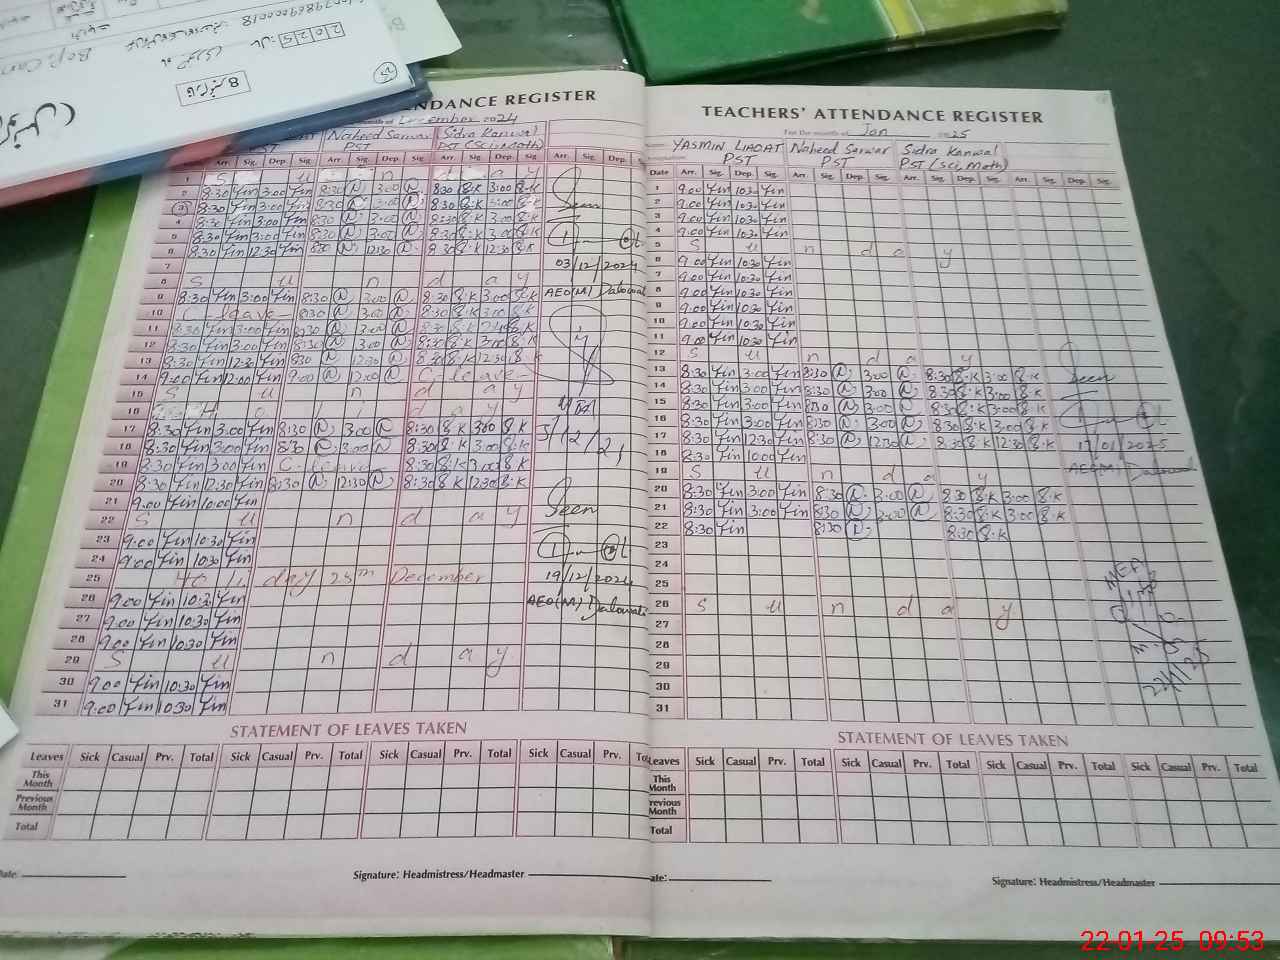 2025
8
TEACHERS' ATTENDANCE REGISTER
NDANCE REGISTER
For the month of Jan 2025
month of December 2024
Naheed Sarwar Sidra Kanwal
PST PST (Sci, Math)
Arr. Sig. Dep. Sig. Arr. Sig. Dep. Sig. Arr. Sig. Dep.
1 S u n d a y
2 8:30 Yin 3:00 Yin 8:30 N 3:00 N 8:30 S.K 3:00 S.K
3 8:30 Yin 3:00 Yin 8:30 N 3:00 N 8:30 S.K 3:00 S.K
4 8:30 Yin 3:00 Yin 8:30 N 3:00 N 8:30 S.K 3:00 S.K
5 8:30 Yin 3:00 Yin 8:30 N 3:00 N 8:30 S.K 3:00 S.K
6 8:30 Yin 12:30 Yin 8:30 N 12:30 N 8:30 S.K 12:30 S.K
7
8 S u n d a y
9 8:30 Yin 3:00 Yin 8:30 N 3:00 N 8:30 S.K 3:00 S.K
10 C-leave- 8:30 N 3:00 N 8:30 S.K 3:00 S.K
11 8:30 Yin 3:00 Yin 8:30 N 3:00 N 8:30 S.K S.K
12 8:30 Yin 3:00 Yin 8:30 N 3:00 N 8:30 S.K 3:00 S.K
13 8:30 Yin 12:30 Yin 8:30 N 12:30 N 8:30 S.K 12:30 S.K
14 9:00 Yin 12:00 Yin 9:00 N 12:00 N C-leave-
15 S u n d a y
16 H o l i d a y
17 8:30 Yin 3:00 Yin 8:30 N 3:00 N 8:30 S.K 3:00 S.K
18 8:30 Yin 3:00 Yin 8:30 N 3:00 N 8:30 S.K 3:00 S.K
19 8:30 Yin 3:00 Yin C-leave 8:30 S.K 3:00 S.K
20 8:30 Yin 12:30 Yin 8:30 N 12:30 N 8:30 S.K 12:30 S.K
21 9:00 Yin 10:00 Yin
22 S u n d a y
23 9:00 Yin 10:30 Yin
24 9:00 Yin 10:30 Yin
25 Holi day 25th December
26 9:00 Yin 10:30 Yin
27 9:00 Yin 10:30 Yin
28 9:00 Yin 10:30 Yin
29 S u n d a y
30 9:00 Yin 10:30 Yin
31 9:00 Yin 10:30 Yin
Seen
03/12/2024
AEO(M) Dalowal
Seen
19/12/2024
AEO(M) Dalowal
STATEMENT OF LEAVES TAKEN
Leaves Sick Casual Prv. Total Sick Casual Prv. Total Sick Casual Prv. Total Sick Casual Prv.
This Month
Previous Month
Total
Signature: Headmistress/Headmaster
YASMIN LIAQAT Naheed Sarwar Sidra Kanwal
PST PST PST (Sci, Math)
Date Arr. Sig. Dep. Sig. Arr. Sig. Dep. Sig. Arr. Sig. Dep. Sig. Arr. Sig. Dep. Sig.
1 9:00 Yin 10:30 Yin
2 9:00 Yin 10:30 Yin
3 9:00 Yin 10:30 Yin
4 9:00 Yin 10:30 Yin
5 S u n d a y
6 9:00 Yin 10:30 Yin
7 9:00 Yin 10:30 Yin
8 9:00 Yin 10:30 Yin
9 9:00 Yin 10:30 Yin
10 9:00 Yin 10:30 Yin
11 9:00 Yin 10:30 Yin
12 S u n d a y
13 8:30 Yin 3:00 Yin 8:30 N 3:00 N 8:30 S.K 3:00 S.K
14 8:30 Yin 3:00 Yin 8:30 N 3:00 N 8:30 S.K 3:00 S.K
15 8:30 Yin 3:00 Yin 8:30 N 3:00 N 8:30 S.K 3:00 S.K
16 8:30 Yin 3:00 Yin 8:30 N 3:00 N 8:30 S.K 3:00 S.K
17 8:30 Yin 12:30 Yin 8:30 N 12:30 N 8:30 S.K 12:30 S.K
18 8:30 Yin 10:00 Yin
19 S u n d a y
20 8:30 Yin 3:00 Yin 8:30 N 3:00 N 8:30 S.K 3:00 S.K
21 8:30 Yin 3:00 Yin 8:30 N 3:00 N 8:30 S.K 3:00 S.K
22 8:30 Yin 8:30 N 8:30 S.K
23
24
25
26 S u n d a y
27
28
29
30
31
Seen
17/01/2025
AEO(M) Dalowal
22/1/25
STATEMENT OF LEAVES TAKEN
Leaves Sick Casual Prv. Total Sick Casual Prv. Total Sick Casual Prv. Total Sick Casual Prv. Total
This Month
Previous Month
Total
Signature: Headmistress/Headmaster
22-01-25 09:53